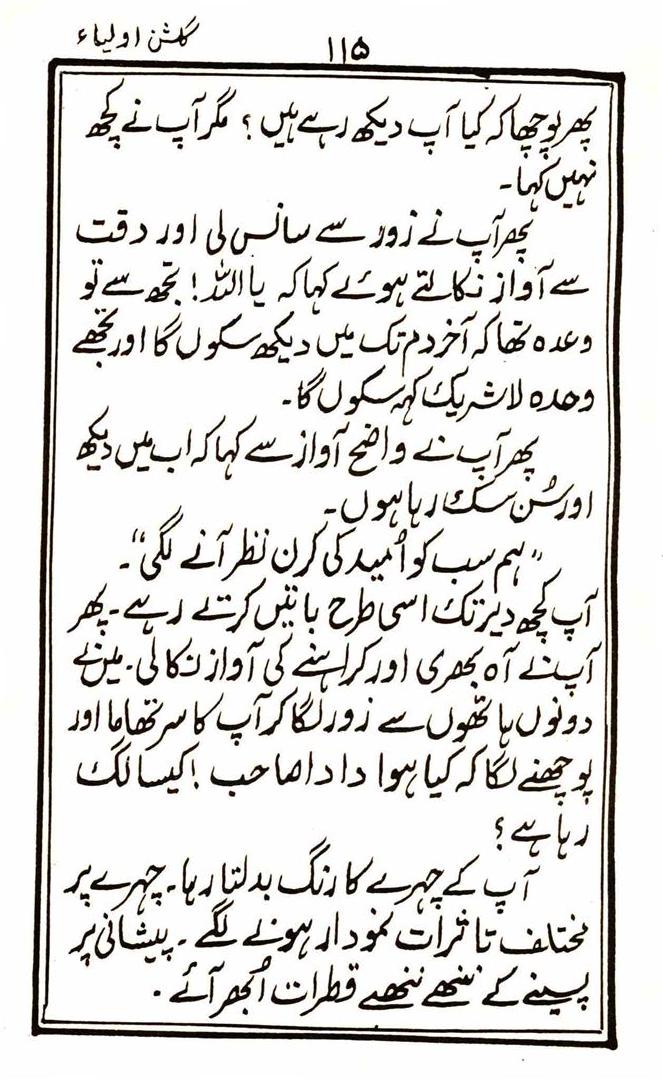 گلشن اولیاء
۱۱۵
پھر پوچھا کہ کیا آپ دیکھ رہے ہیں ؟ مگر آپ نے کچھ
نہیں کہا۔
پھر آپ نے زور سے سانس لی اور دقت
سے آواز نکالتے ہوئے کہا کہ یا اللہ ! تجھ سے تو
وعدہ تھا کہ آخر دم تک میں دیکھ سکوں گا اور تجھے
وحدہ لا شریک کہہ سکوں گا۔
پھر آپ نے واضح آواز سے کہا کہ اب میں دیکھ
اور سُن سک رہا ہوں۔
"ہم سب کو اُمید کی کرن نظر آنے لگی"۔
آپ کچھ دیر تک اسی طرح باتیں کرتے رہے۔ پھر
آپ نے آہ بھری اور کراہنے کی آواز نکالی۔ میں نے
دونوں ہاتھوں سے زور لگا کر آپ کا سر تھاما اور
پوچھنے لگا کہ کیا ہوا دادا صاحب ! کیسا لگ
رہا ہے ؟
آپ کے چہرے کا رنگ بدلتا رہا۔ چہرے پر
مختلف تاثرات نمودار ہونے لگے ۔ پیشانی پر
پسینے کے ننھے ننھے قطرات اُبھر آئے ۔